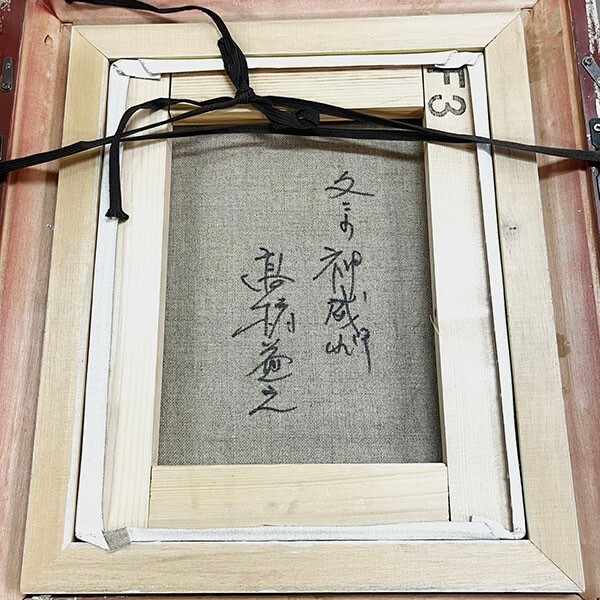 冬の神威岬
高橋益之
F3